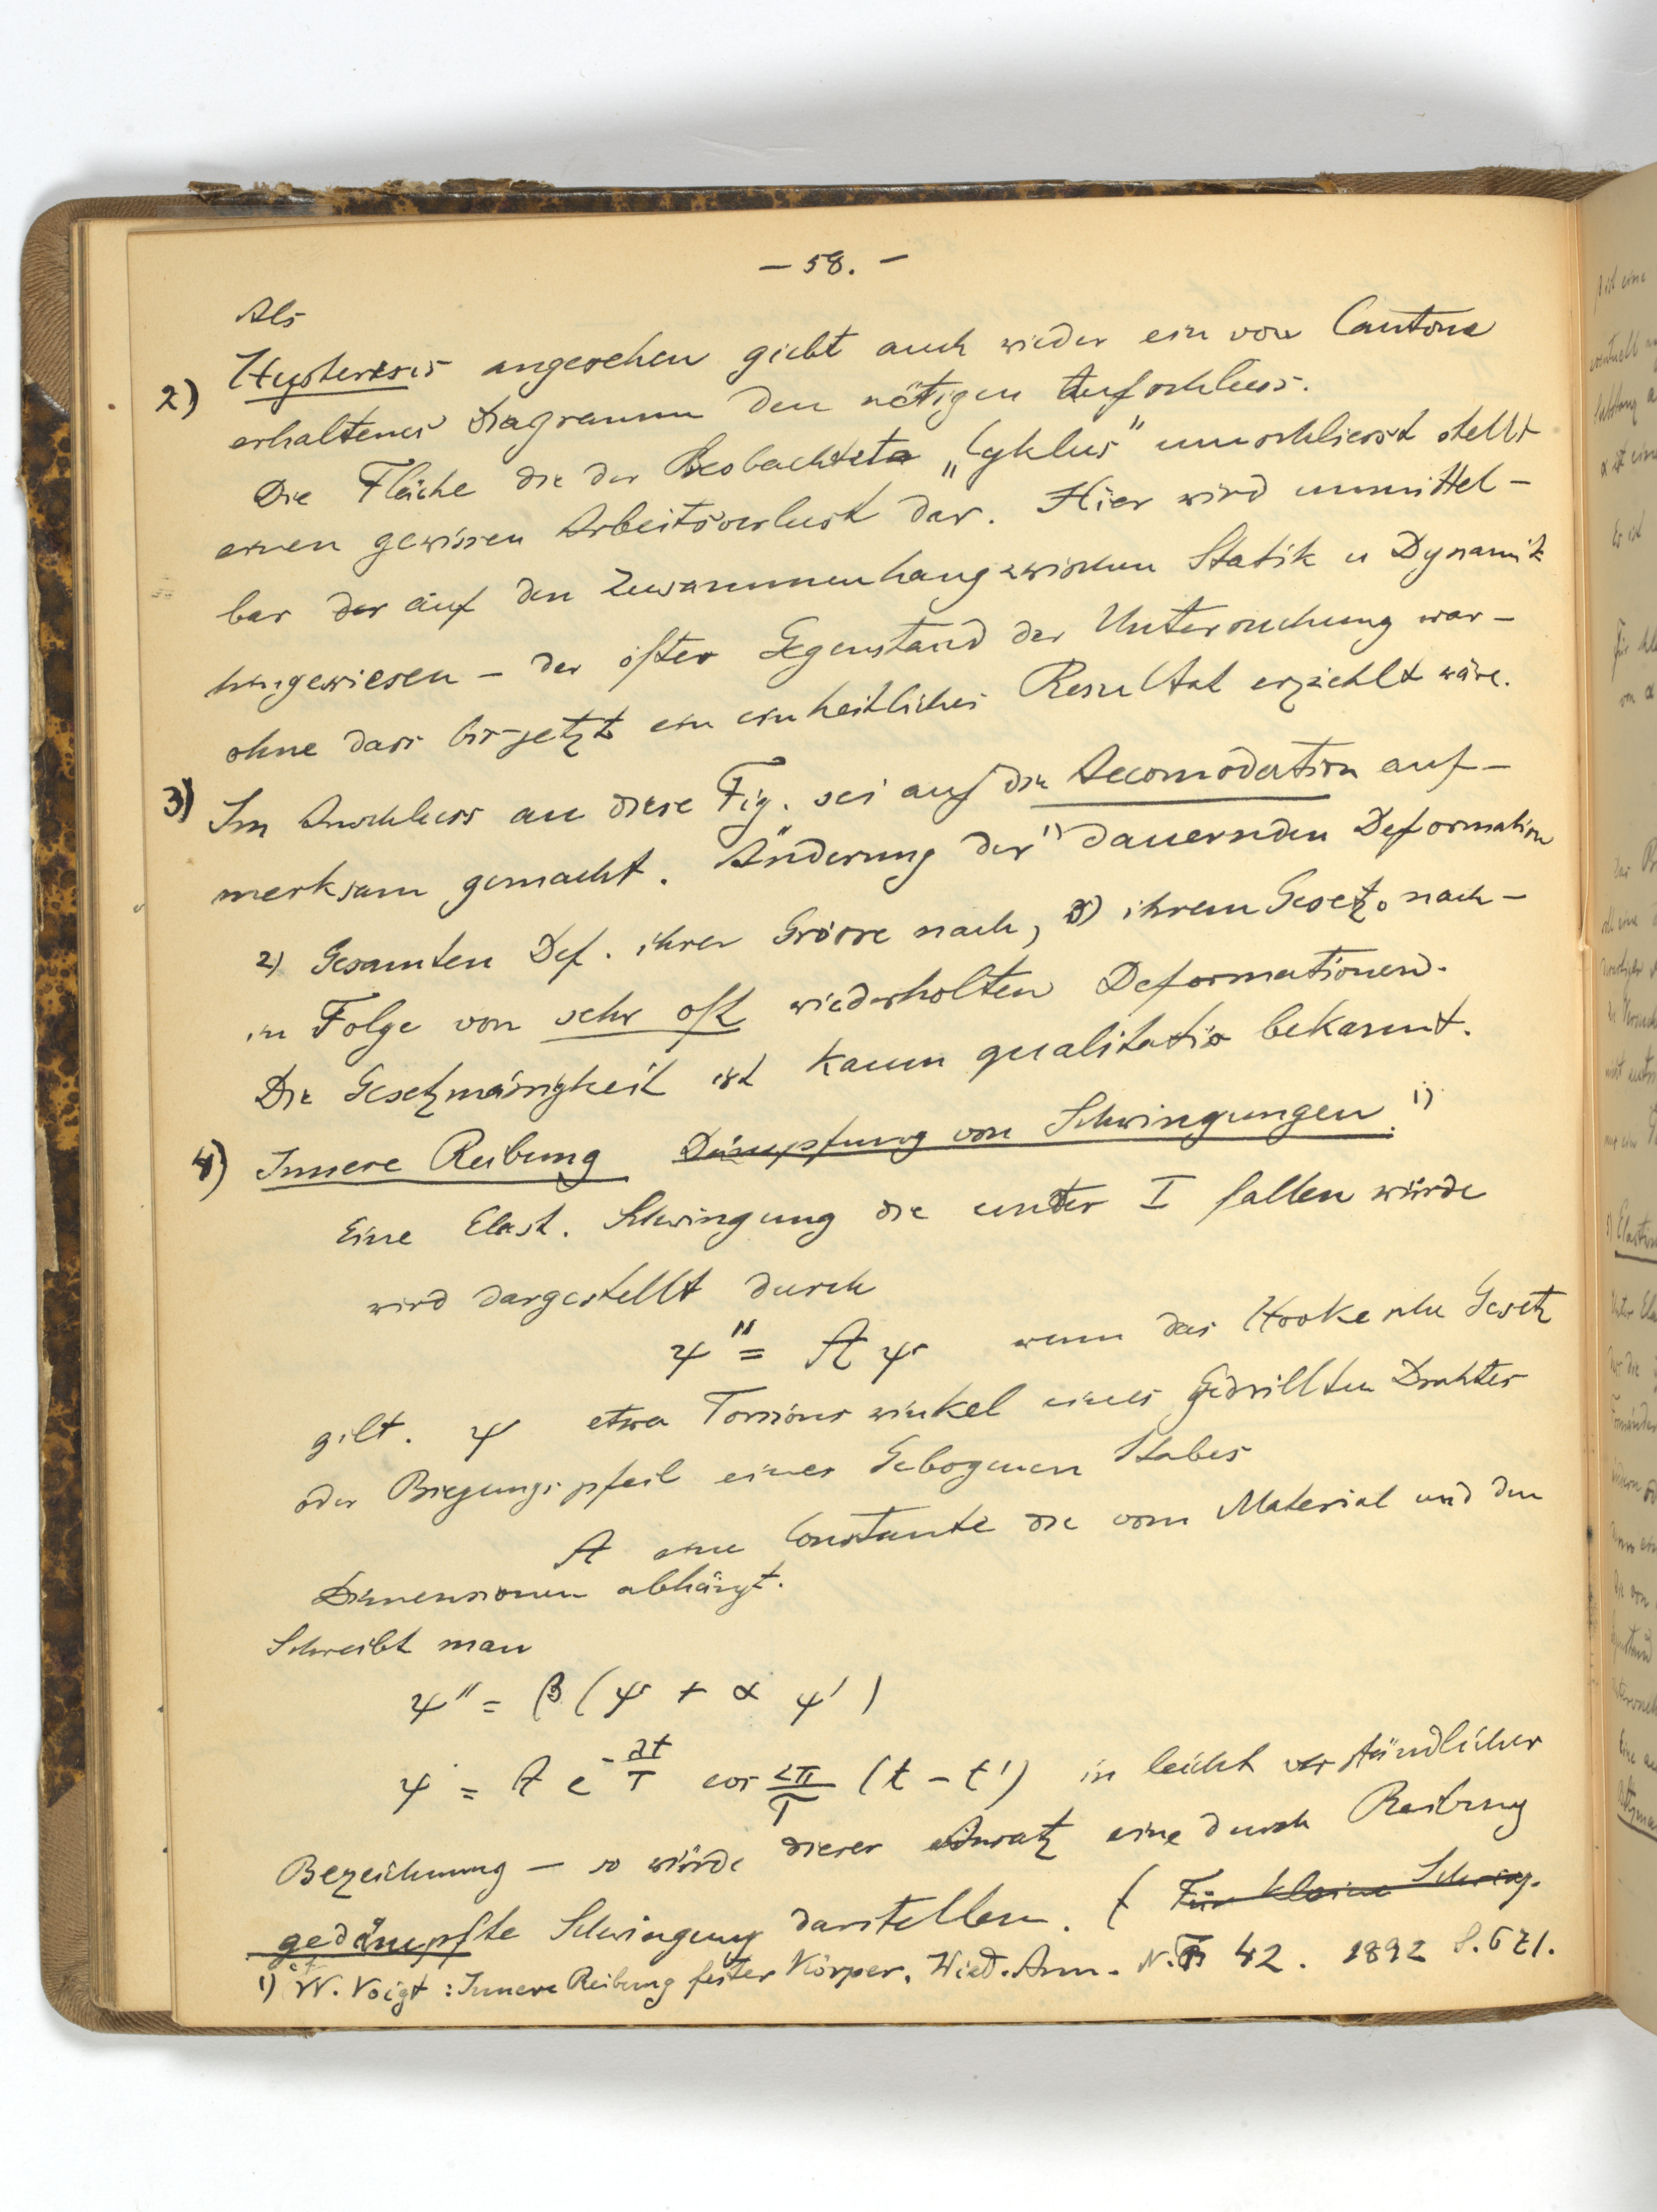 – 58. –
Als
2) Hysteresis angesehen giebt auch wieder ein von Cantone
erhaltenes Diagramm den nötigen Aufschluss.
Die Fläche die der Beobachtete „Cyklus" umschliesst stellt
einen gewissen Arbeitsverlust dar. Hier wird unmittel-
bar der auf den Zusammenhang zwischen Statik u Dynamik
hingewiesen – der öfter Gegenstand der Untersuchung war –
ohne dass bis jetzt ein einheitliches Resultat erziehlt wäre.
3) Im Anschluss an diese Fig. sei auf die Accomodation auf-
merksam gemacht. Änderung der 1) dauernden Deformation
2) Gesamten Def. ihrer Grösse nach, 3) ihrem Gesetz nach –
in Folge von sehr oft wiederholten Deformationen.
Die Gesetzmässigkeit ist kaum qualitativ bekannt.
4) Innere Reibung Dämpfung von Schwingungen. 1)
Eine Elast. Schwingung die unter I fallen würde
wird dargestellt durch
ψ'' = A ψ wenn das Hooke'sche Gesetz
gilt. ψ etwa Torsionswinkel eines Gedrillten Drahtes
oder Biegungspfeil eines Gebogenen Stabes
A eine Constante die vom Material und den
Dimensionen abhängt.
Schreibt man
ψ'' = β (ψ + α ψ')
ψ = A e^{-λt/T} cos 2π/T (t - t') in leicht verständlicher
Bezeichnung – so würde dieser Ansatz eine durch Reibung
gedämpfte Schwingung darstellen. ( Für kleine Schwing.
1) cf W. Voigt : Innere Reibung fester Körper. Wied. Ann. N.F. 42. 1892 S. 671.